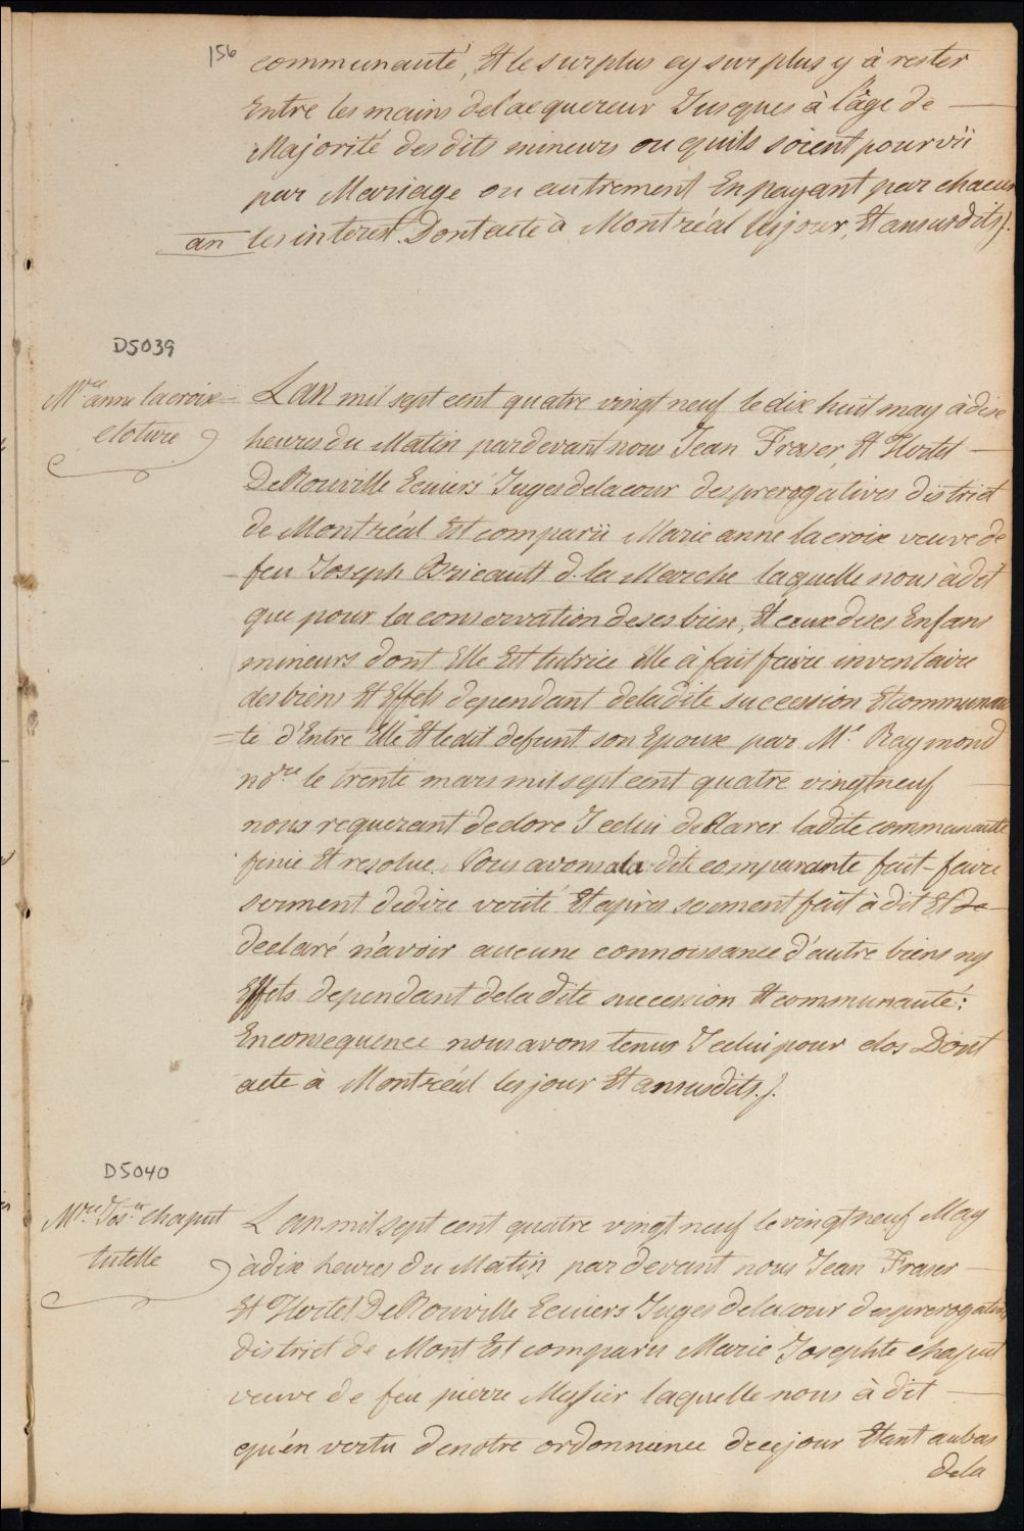 156
communauté, Et le surplus cy surplus y à rester
Entre les mains delacquereur Jusques à lâge de
Majorité desdits mineurs ou quils soient pourvü
par Mariage ou autrement En payant par chacun
an les interest. Dont acte à Montréal les jour, Et an susdits ./.
D5039
Mrie anne lacroix
cloture
Lan mil sept cent quatre vingt neuf le dix huit may à dix
heures du Matin pardevant nous Jean Fraser, Et Hertel
DeRouville Ecuiers Juges delacour desprerogatives district
de Montréal Est comparü Marie anne lacroix veuve de
feu Joseph Bricault d. la Marche laquelle nous à dit
que pour la conservation deses bien, Et ceux deses Enfans
mineurs dont Elle Est tutrice Elle à fait faire inventaire
des biens Et Effets dependant deladite succession Et communau
=te d'Entre Elle Et ledit defunt son Epoux par Me. Raymond
nore le trente mars mil sept cent quatre vingt neuf
nous requerant declore Icelui declarer ladite communauté
finie Et resolue. Nous avons ala dite comparante fait-faire
serment dedire verité Et après serment fait à dit Et de
declaré n'avoir aucune connoissance d'autre biens ny
Effets dependant deladite succession Et communauté:
Enconsequence nous avons tenus Icelui pour clos Dont
acte à Montréal les jour Et an susdits ./.
D5040
Mrie Jos.te chaput
tutelle
Lan mil sept cent quatre vingt neuf le vingt neuf May
à dix heures du Matin par devant nous Jean Fraser
Et Hertel DeRouville Ecuiers Juges delacour desprerogatives
district de Mont Est comparu Marie Josephte chaput
veuve de feu pierre Messier laquelle nous à dit
qu'en vertu denotre ordonnance decejour Etant aubas
dela